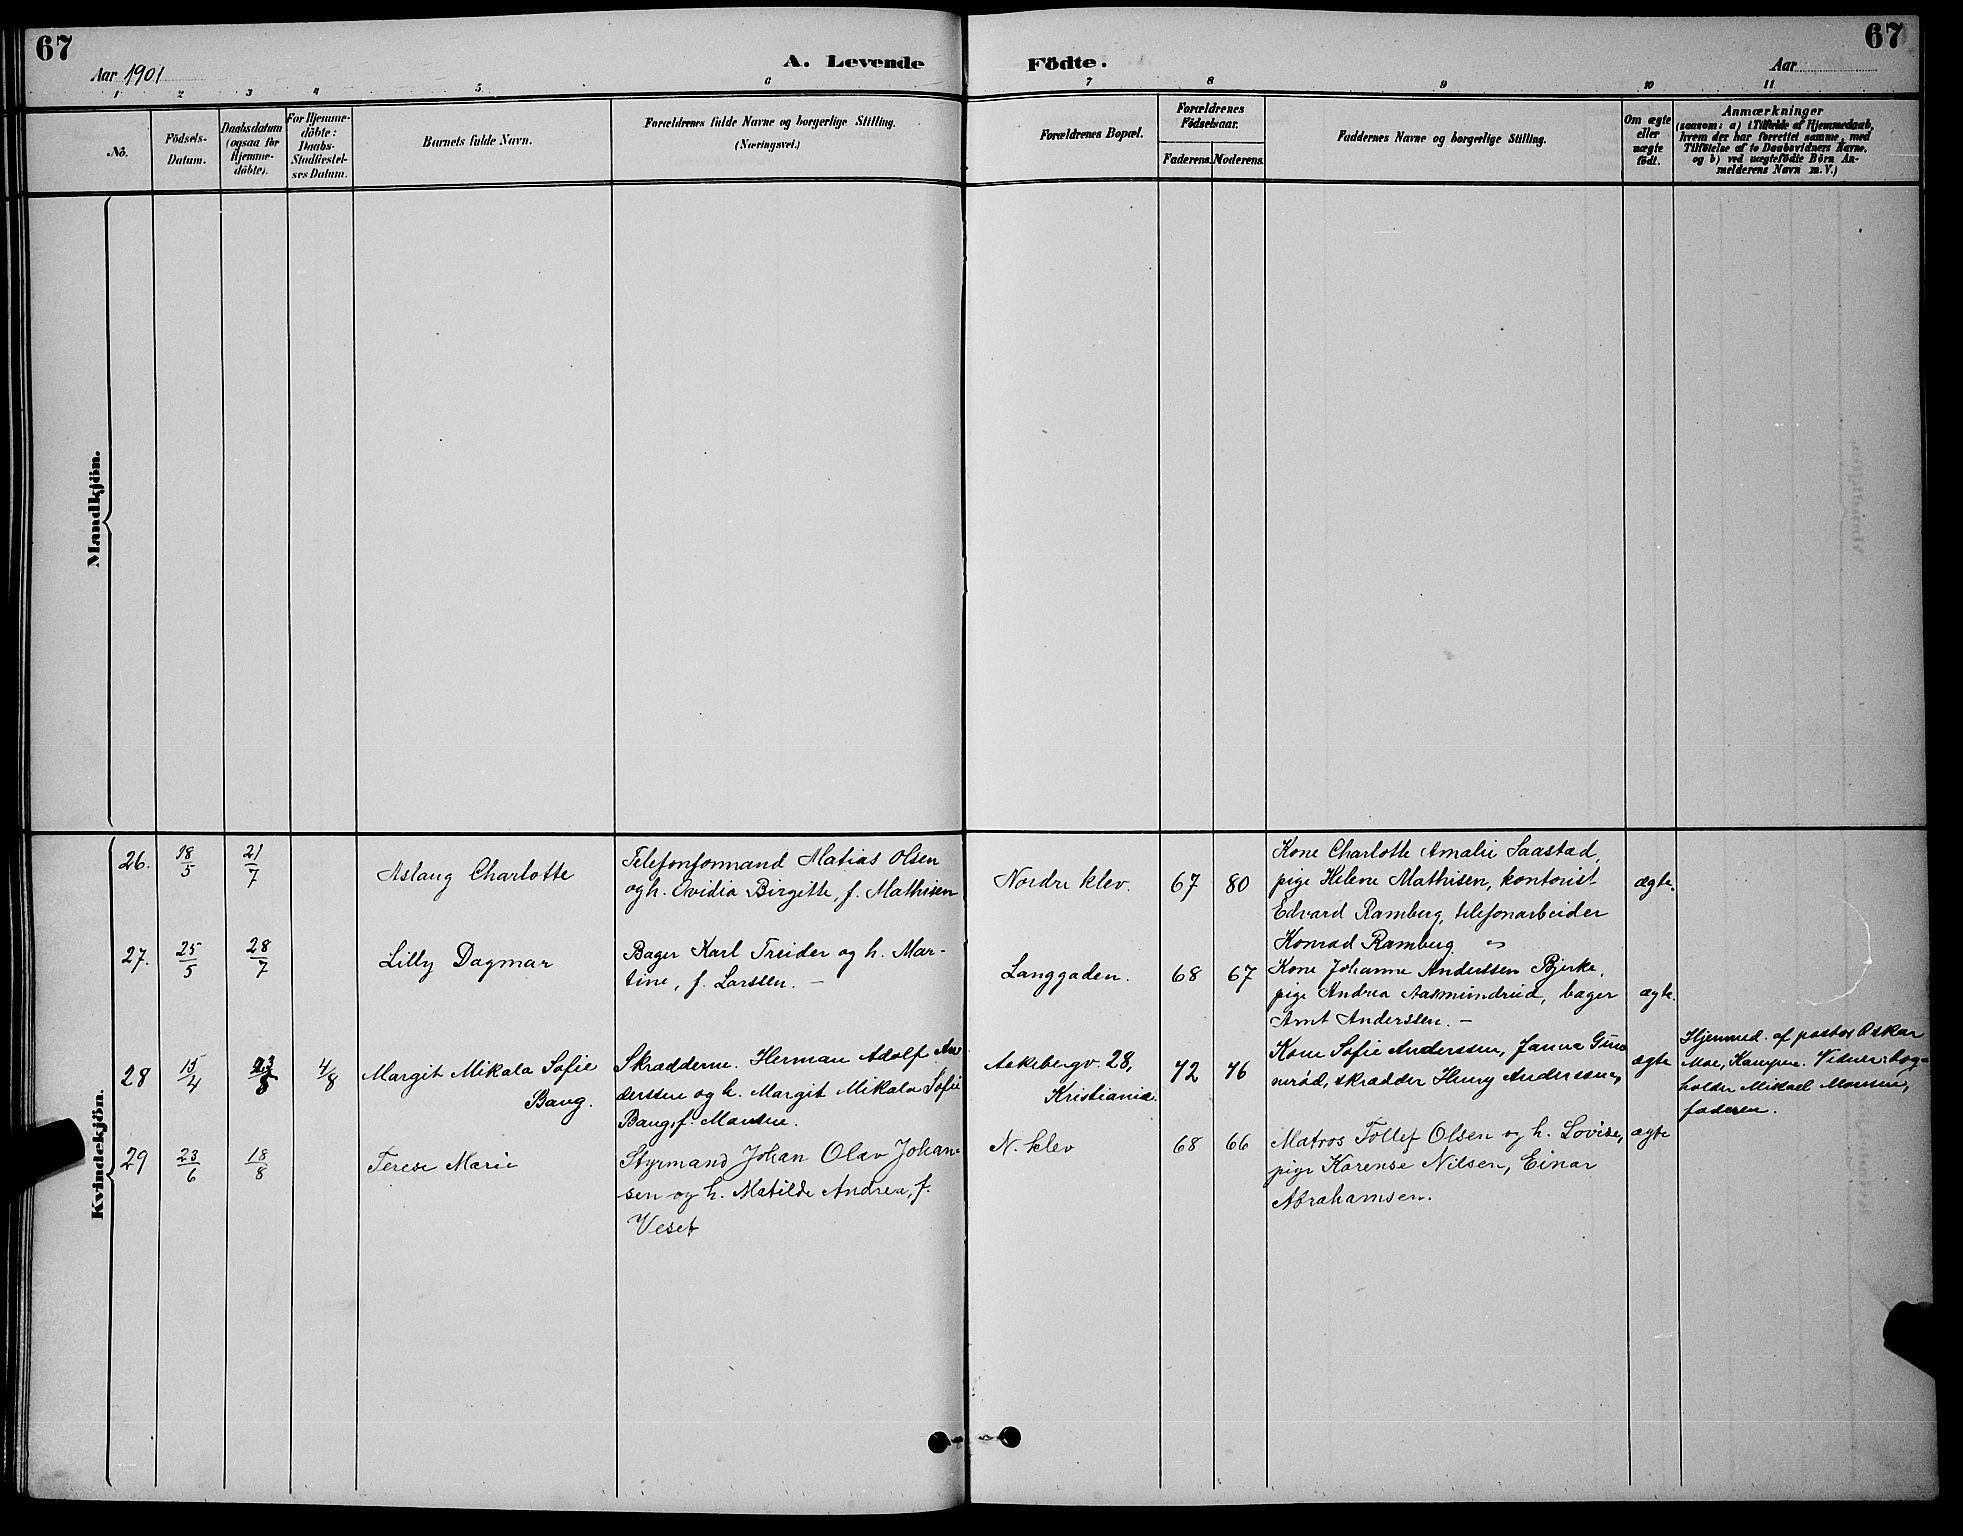 67
67
Aar 1901
A. Levende
Födte.
Aar
1
2
3
4
5
6
7
8
9
10
11
No.
Födsels-
Datum.
Daabsdatum
(ogsaa for
Hjemme-
döbte).
For Hjemme-
döbte:
Daabs-
Stadfæstel-
ses Datum.
Barnets fulde Navn.
Forældrenes fulde Navne og borgerlige Stilling.
(Næringsvei.)
Forældrenes Bopæl.
Forældrenes
Födselsaar.
Faderens.
Moderens.
Faddernes Navne og borgerlige Stilling.
Om ægte
eller
uægte
födt.
Anmærkninger
(saasom: a) i Tilfælde af Hjemmedaab,
hvem der har forrettet samme, med
Tilföielse af to Daabsvidners Navne,
og b) ved uægtefödte Börn An-
melderens Navn m. V.)
Mandkjön.
Kvindekjön.
26.
18/5
21/7
Aslaug Charlotte
Telefonformand Matias Olsen
og h. Ovidia Birgitte, f. Mathisen
Nordre klev.
67
80
Kone Charlotte Amalie Saastad,
pige Helene Mathisen, kontorist
Edvard Ramberg, telefonarbeider
Konrad Ramberg
ægte.
27.
25/5
28/7
Lilly Dagmar
Bager Karl Treider og h. Mar-
tine, f. Larssen. –
Langgaden.
68
67
Kone Johanne Anderssen Bjerke,
pige Andrea Aasmundrud, bager
Arnt Anderssen. –
ægte.
28
15/4
4/8
Margit Mikala Sofie
Bang.
Skrædderm. Herman Adolf An
derssen og h. Margit Mikala Sofie
Bang, f. Monsen.
Askebergv. 28,
Kristiania.
72
76
Kone Sofie Anderssen, Janna Gun
nerød, skrædder Henry Anderssen,
ægte
Hjemmed. af pastor Oskar
Moe, Kampen. Vidner: bog-
holder Mikael Monsen,
faderen.
29
23/6
18/8
Terese Marie
Styrmand Johan Olav Johan-
sen og h. Matilde Andrea, f.
Veset
N. klev
68
66
Matros Tollef Olsen og h. Lovise,
pige Karense Nilsen, Einar
Abrahamsen.
ægte